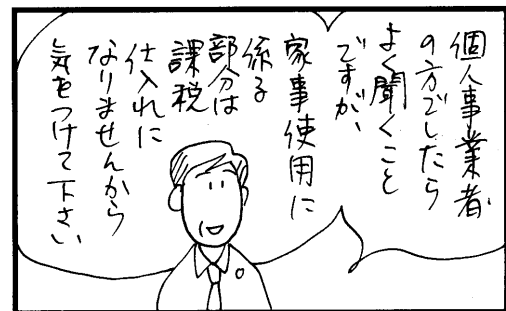 個人事業者
の方でしたら
よく聞くこと
ですが、
家事使用に
係る
部分は
課税
仕入れに
なりませんから
気をつけて下さい